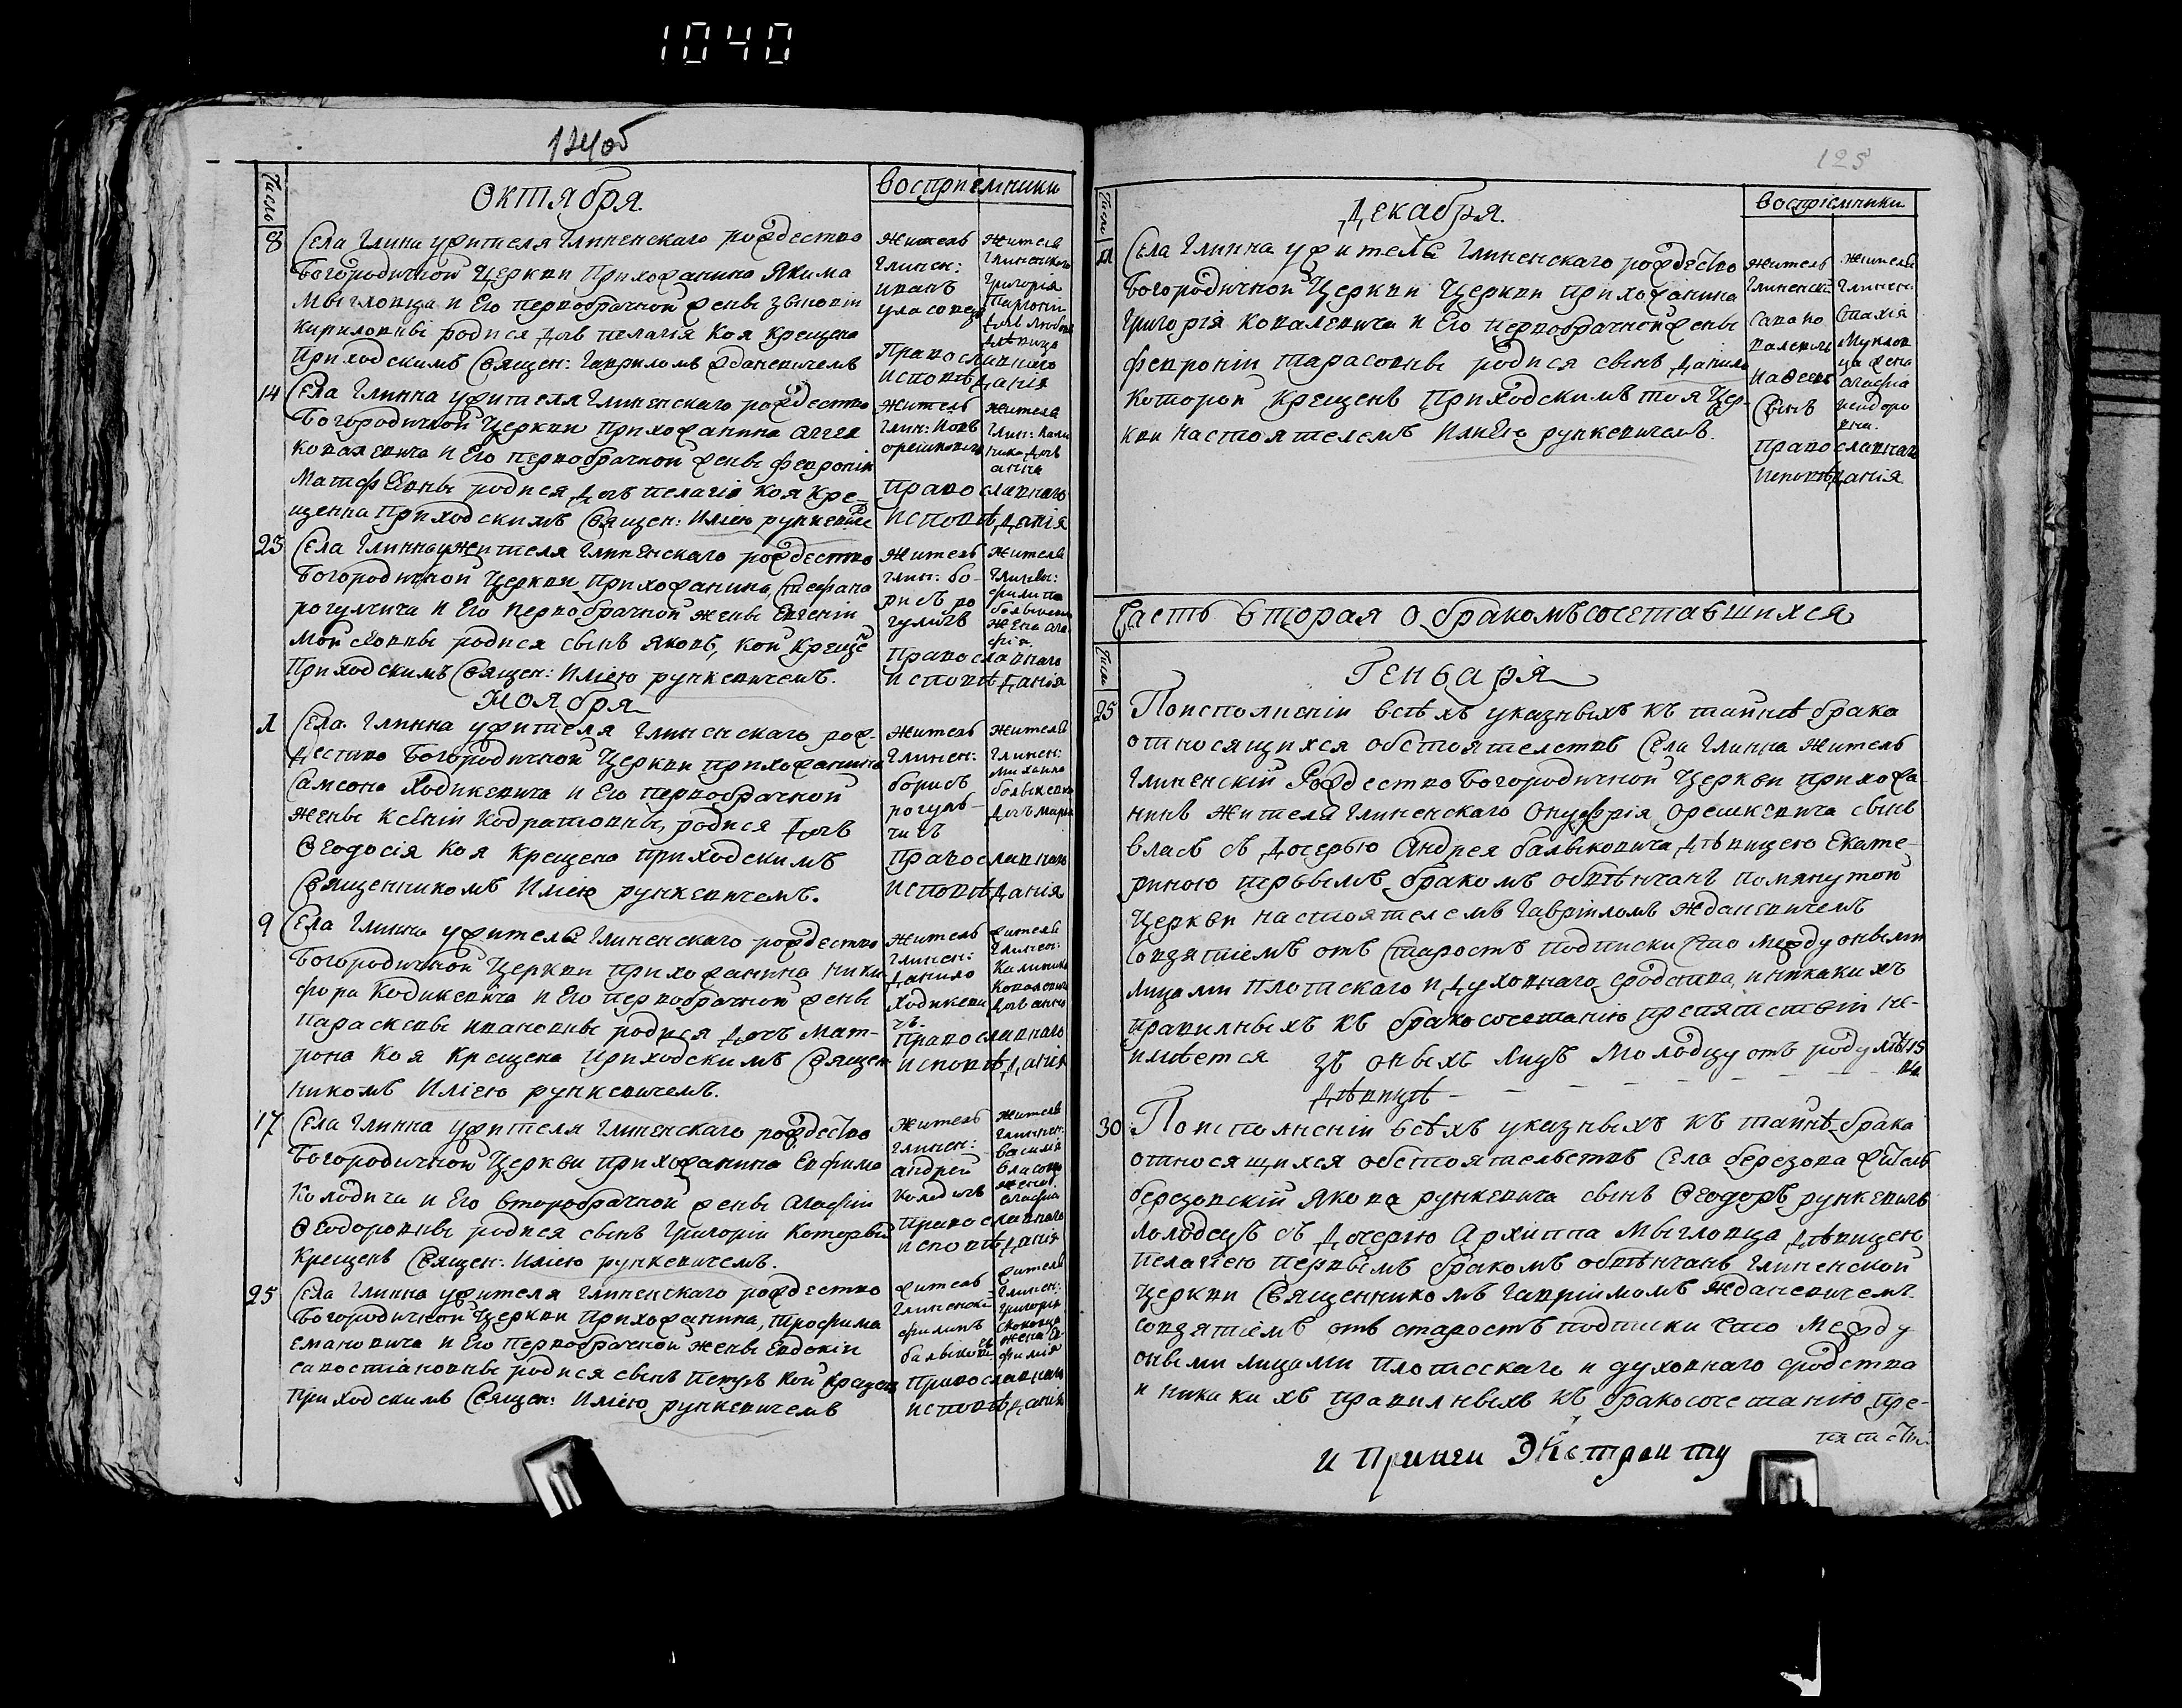 1040
124об
Число
Октября.
Воспрiемники
8
Села Глина у жителя Глиненскаго рождество
Богородичной Церкви Прихожанина Якима
Мыгловца и Его первобрачной жены Зеновiи
Кириловны родися дочь Пелагiя Коя Крещена
Приходскимъ Священ: Гавриломъ Жданевичемъ
Житель
Глинен:
иванъ
уласовецъ
Жителя
Глиненскаго
Григорiя
дочь
дѣвица
Православнаго
исповѣданiя
14
Села Глинна у жителя Глиненскаго рождество
Богородичной Церкви прихожанина
Ковалевича и Его первобрачной жены Февронiи
Матфѣевны родися дочь Пелагiя Коя Кре-
щенна Приходскимъ Священ: Илiею рункевиче
Житель
Глин:
орешкович
Жителя
Глин:
дочь
анна
Православнаго
Исповѣданiя
23
Села Глинна у жителя Глиненскаго рождество
Богородичной Церкви Прихожанина, Стефана
рогулчича и Его Первобрачной жены Евгенiи
Мойсеовны родися сынъ Яковъ, кой Креще
Приходскимъ Священ: Илiею рункевичемъ.
Житель
глин: бо-
рисъ ро
гуличъ
Жителя
Глинен:
филипа
жена ага
фiя.
Православнаго
исповѣданiя
Ноября
1
Села Глинна у жителя Глиненскаго рож-
дество Богородичной Церкви прихожанина
Самсона Ходикевича и Его первобрачной
жены Ксенiи Кодратовны, родися дочь
Ѳеодосiя Коя Крещена приходскимъ
Священникомъ Илiею рункевичемъ.
Житель
Глинен:
борисъ
рогуль-
чичъ
Жителя
Глинен:
михаила
дочь мария
Православнаго
исповѣданiя
9
Села Глинна у жителя Глиненскаго рождество
Богородичной Церкви прихожанина Ники
фора Кодикевича и Его первобрачной жены
Параскевы ивановны родися дочь Мат-
рона Коя Крещена Приходскимъ Священ
никомъ Илiею рункевичемъ.
Житель
глинен:
данило
ходикеви
чъ.
жителя
Глинен:
Калиника
Ковалевич
дочь анна
Православнаго
исповѣданiя
17
Села Глинна у жителя Глиненскаго рождество
Богородичной Церкви прихожанина Ефима
Колодича и Его второбрачной жены Агафiи
Ѳеодоровны родися сынъ Григорiй Который
Крещенъ Священ: Илiею рункевичемъ.
Житель
глинен:
андрей
Колодичъ
жителя
глинен:
василiя
власовца
жена
агафiа
Православнаго
исповѣданiя
25
Села Глинна у жителя Глиненскаго рождество
Богородичной Церкви Прихожанина, Трофима
Емановича и Его Первобрачной жены Евдокiи
савостiановны родися сынъ кой Крещен
приходскимъ Священ: Илiею рункевичемъ
Житель
Глиненскi
филипъ
жителя
Глинен:
Григорiя
жена
Православнаго
исповѣданiя
125
Число
Декабря.
Воспрiемники
11
Села Глинна у жителя Глиненскаго рождество
Богородичной Церкви Церкви прихожанина
Григорiя Ковалевича и Его первобрачной жены
Февронiи тарасовны родися сынъ Данило
Которой Крещенъ Приходскимъ тоя Цер-
кви Настоятелемъ Илiею рункевичемъ.
Житель
Глиненскi
Сынъ
Жителя
Глинен:
Стахiя
жена
агафiа
исидоро
вна.
Православнаго
исповѣданiя
Часть вторая о бракомъсочетавшихся
Число
Генваря
25
По исполненiи всѣхъ указныхъ къ тайнѣ брака
относящихся обстоятелствъ Села Глинна Житель
Глиненскiй Рождество Богородичной Церкви прихожа-
нинъ Жителя Глиненскаго Онуфрiя орешкевича сынъ
Власъ съ дочерью Андрея балыковича дѣвицею Екате-
риною первымъ бракомъ обвѣнчанъ помянутой
Церкви настоятелемъ Гаврiиломъ Жданевичемъ
совзятiемъ отъ Старостъ подписки что между оными
лицами плотскаго и духовнаго сродства и никакихъ
правилныхъ къ бракосочетанiю препятствiи не-
имѣется зъ оныхъ лицъ Молодцу отъ роду лѣтъ
дѣвицѣ
30
По исполненiи всѣхъ указныхъ къ тайнѣ брака
относящихся обстоятельствъ Села березова житель
березовскiй Якова рункевича сынъ Ѳеодоръ рункевичъ
Молодецъ съ дочерю Архиппа Мыгловца дѣвицею
Пелагiею первымъ бракомъ обвѣнчанъ Глиненской
Церкви Священникомъ Гаврiиломъ Жданевичемъ
совзятiемъ отъ старостъ подписки что между
оными лицами плотсскаго и духовнаго сродства
и никакихъ правилныхъ къ бракосочетанiю пре-
пятствi